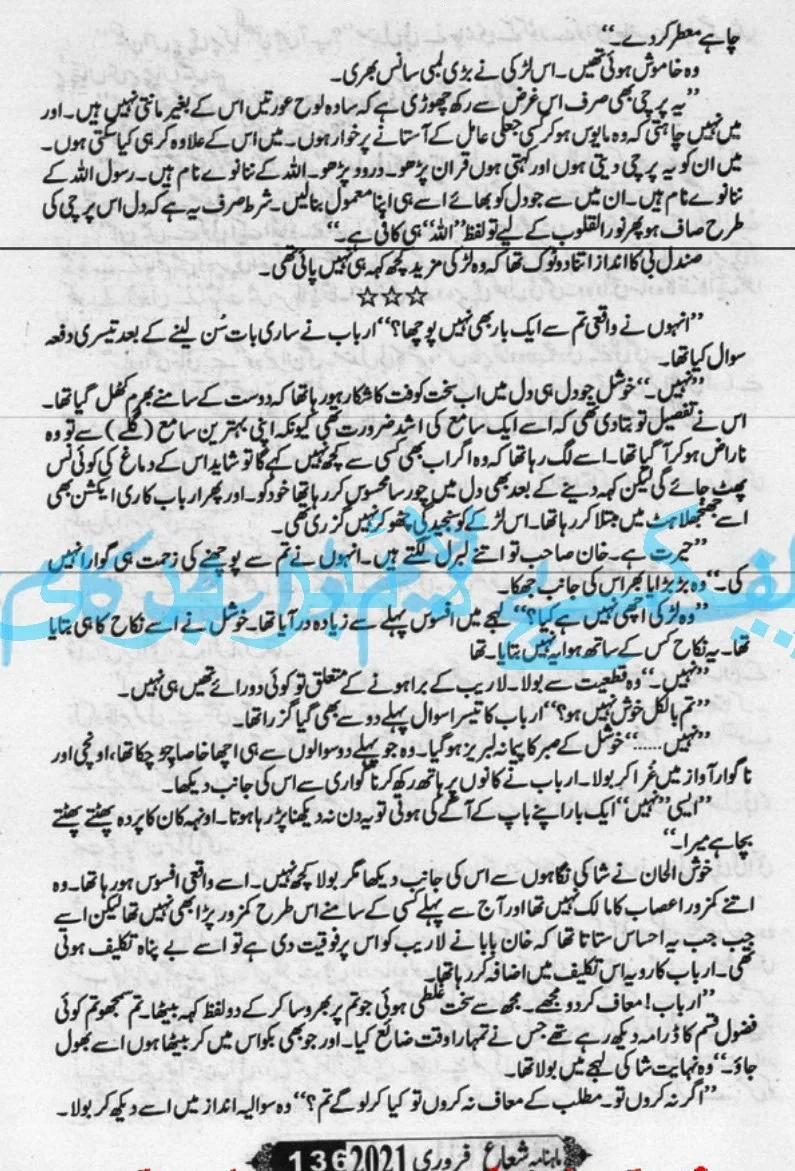 چاہے معطر کر دے۔“
وہ خاموش ہوئی تھیں۔ اس لڑکی نے بڑی لمبی سانس بھری۔
”یہ پرچی بھی صرف اس غرض سے رکھ چھوڑی ہے کہ سادہ لوح عورتیں اس کے بغیر مانتی نہیں ہیں۔ اور
میں نہیں چاہتی کہ وہ مایوس ہو کر کسی جعلی عامل کے آستانے پر خوار ہوں۔ میں اس کے علاوہ کر ہی کیا سکتی ہوں۔
میں ان کو یہ پرچی دیتی ہوں اور کہتی ہوں قران پڑھو۔ درود پڑھو۔ اللہ کے ننانوے نام ہیں۔ رسول اللہ کے
ننانوے نام ہیں۔ ان میں سے جو دل کو بھائے اسے ہی اپنا معمول بنالیں۔ شرط صرف یہ ہے کہ دل اس پرچی کی
طرح صاف ہو پھر نور القلوب کے لیے تو لفظ ”اللہ“ ہی کافی ہے۔“
صندل بی کا انداز اتنا دو ٹوک تھا کہ وہ لڑکی مزید کچھ کہہ ہی نہیں پائی تھی۔
☆☆☆
”انہوں نے واقعی تم سے ایک بار بھی نہیں پوچھا؟“ ارباب نے ساری بات سُن لینے کے بعد تیسری دفعہ
سوال کیا تھا۔
”نہیں۔“ خوشل جو دل ہی دل میں اب سخت کوفت کا شکار ہو رہا تھا کہ دوست کے سامنے بھرم کھل گیا تھا۔
اس نے تفصیل تو بتا دی تھی کہ اسے ایک سامع کی اشد ضرورت تھی کیونکہ اپنی بہترین سامع (گلے) سے تو وہ
ناراض ہو کر آ گیا تھا۔ اسے لگ رہا تھا کہ وہ اگر اب بھی کسی سے کچھ نہیں کہے گا تو شاید اس کے دماغ کی کوئی نس
پھٹ جائے گی لیکن کہہ دینے کے بعد بھی دل میں چور سا محسوس کر رہا تھا خود کو۔ اور پھر ارباب کا ری ایکشن بھی
اسے جھنجھلاہٹ میں مبتلا کر رہا تھا۔ اس لڑکے کو سنجیدگی چھو کر نہیں گزری تھی۔
”حیرت ہے۔ خان صاحب تو اتنے لبرل لگتے ہیں۔ انہوں نے تم سے پوچھنے کی زحمت ہی گوارا نہیں
کی۔“ وہ بڑبڑایا پھر اس کی جانب جھکا۔
”وہ لڑکی اچھی نہیں ہے کیا؟“ لہجے میں افسوس پہلے سے زیادہ در آیا تھا۔ خوشل نے اسے نکاح کا ہی بتایا
تھا۔ یہ نکاح کس کے ساتھ ہوا یہ نہیں بتایا۔ تھا
”نہیں۔“ وہ قطعیت سے بولا۔ لاریب کے برا ہونے کے متعلق تو کوئی دو رائے تھیں ہی نہیں۔
”تم بالکل خوش نہیں ہو؟“ ارباب کا تیسرا سوال پہلے دو سے بھی گیا گزرا تھا۔
”نہیں.....“ خوشل کے صبر کا پیمانہ لبریز ہو گیا۔ وہ جو پہلے دو سوالوں سے ہی اچھا خاصا چڑ چکا تھا، اونچی اور
ناگوار آواز میں غرا کر بولا۔ ارباب نے کانوں پر ہاتھ رکھ کر ناگواری سے اس کی جانب دیکھا۔
”ایسی ”نہیں“ ایک بار اپنے باپ کے آگے کی ہوتی تو یہ دن نہ دیکھنا پڑ رہا ہوتا۔ اونہہ کان کا پردہ پھٹتے پھٹتے
بچا ہے میرا۔“
خوش الحان نے شاکی نگاہوں سے اس کی جانب دیکھا مگر بولا کچھ نہیں۔ اسے واقعی افسوس ہو رہا تھا۔ وہ
اتنے کمزور اعصاب کا مالک نہیں تھا اور آج سے پہلے کسی کے سامنے اس طرح کمزور پڑا بھی نہیں تھا لیکن اسے
جب جب یہ احساس ستاتا تھا کہ خان بابا نے لاریب کو اس پر فوقیت دی ہے تو اسے بے پناہ تکلیف ہوتی
تھی۔ ارباب کا رویہ اس تکلیف میں اضافہ کر رہا تھا۔
”ارباب! معاف کر دو مجھے۔ مجھ سے سخت غلطی ہوئی جو تم پر بھروسا کر کے دو لفظ کہہ بیٹھا۔ تم سمجھو تم کوئی
فضول قسم کا ڈرامہ دیکھ رہے تھے جس نے تمہارا وقت ضائع کیا۔ اور جو بھی بکواس میں کر بیٹھا ہوں اسے بھول
جاؤ۔“ وہ نہایت شاکی لہجے میں بولا تھا۔
”اگر نہ کروں تو۔ مطلب کے معاف نہ کروں تو کیا کر لو گے تم؟“ وہ سوالیہ انداز میں اسے دیکھ کر بولا۔
ماہنامہ شعاع فروری 2021 136